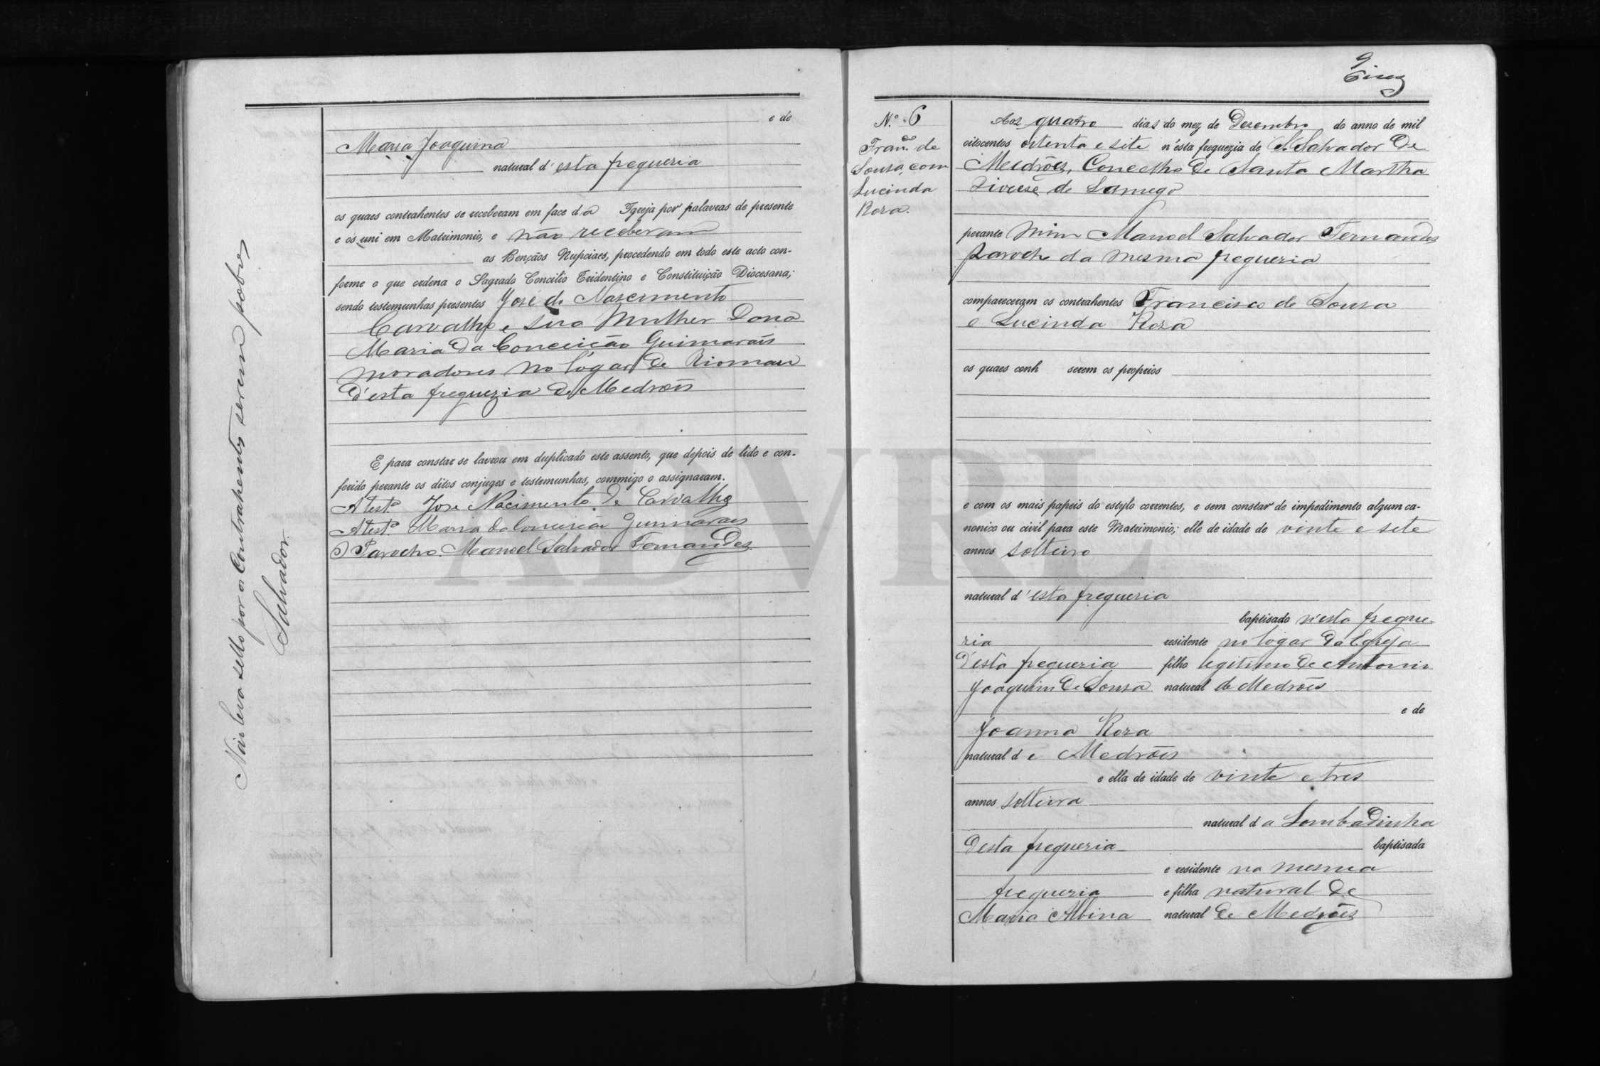 e de
Maria Joaquina
natural d'esta fregueria
os quaes contrahentes se receberam em face da Igreja por palavras de presente
e os uni em Matrimonio, e não receberam
as Bençãos Nupciaes, procedendo em todo este acto con-
forme o que ordena o Sagrado Concilio Tridentino e Constituição Diocesana;
sendo testemunhas presentes Jose do Nascimento
Carvalho e sua Mulher Dona
Maria da Conceição Guimarais
moradores no logar de
d'esta fregueria de Medrões
E para constar se lavrou em duplicado este assento, que depois de lido e con-
ferido perante os ditos conjuges e testemunhas, commigo o assignaram.
A testª Jose Nacimento de Carvalho
A testª Maria da Conceicão Guimaraes
O Parocho. Manoel Salvador Fernandes
Não leva sello por os Contrahentes serem pobres
Salvador
5
Cinco
Nº 6
Franco de
Sousa, com
Lucinda
Rosa.
Aos quatro dias do mez de Dezembro do anno de mil
oitocentos oitenta e sete n'esta freguezia de S. Salvador de
Medrões, Concelho de Santa Martha
Diocese de Lamego
perante mim Manoel Salvador Fernandes
Parocho da mesma fregueria
compareceram os contrahentes Francisco de Sousa
e Lucinda Rosa
os quaes conh serem os proprios
e com os mais papeis do estylo correntes, e sem constar de impedimento algum ca-
nonico ou civil para este Matrimonio; elle de idade de vinte e sete
annos solteiro
natural d'esta fregueria
baptisado n'esta fregue
ria residente no logar da Egreja
d'esta fregueria filho legitimo de Antonio
Joaquim de Sousa natural de Medrões
e de
Joanna Rosa
natural de Medrões
e ella de idade de vinte e tres
annos solteira
natural da Lombadinha
desta fregueria baptisada
e residente na mesma
fregueria e filha natural de
Maria Albina natural de Medrões
ADVRL